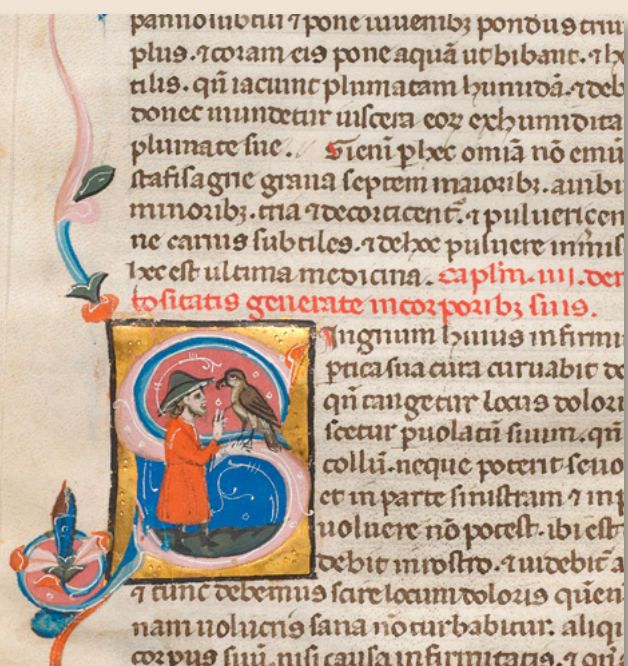 pannosubtili ⁊ pone iuuenibꝫ pondus
plus. ⁊ coram eis pone aquā ut bibant. ⁊
tilis. qn̄ iaciunt plumatam humidā. ⁊ deb
donec mundetur uiscera eoꝝ ex humidita
plumate sue. Si eni ꝑ hec omīa nō emū
stafisagrie grana septem maioribꝫ. auibꝫ
minoribꝫ. tria ⁊ decorticent̄. ⁊ puluericen
ne carnis subtiles. ⁊ de hoc puluere
hec est ultima medicina. capl̄m. iii. de
tositatis generate in corporibꝫ suis.
Signum huius infirmi
ptica sua cura curuabit
qn̄ tangetur locus dolori
scetur puolatū suum. qn̄
collū. neque poterit
et in parte sinistram ⁊ in
uoluere nō potest. ibi est
debit in rostro. ⁊ uidebit
⁊ tunc debemus scire locum doloris
nam uolucris sana nō curbabitur. aliq
corpus suū. nisi causa infirmitatis. ⁊ qn̄